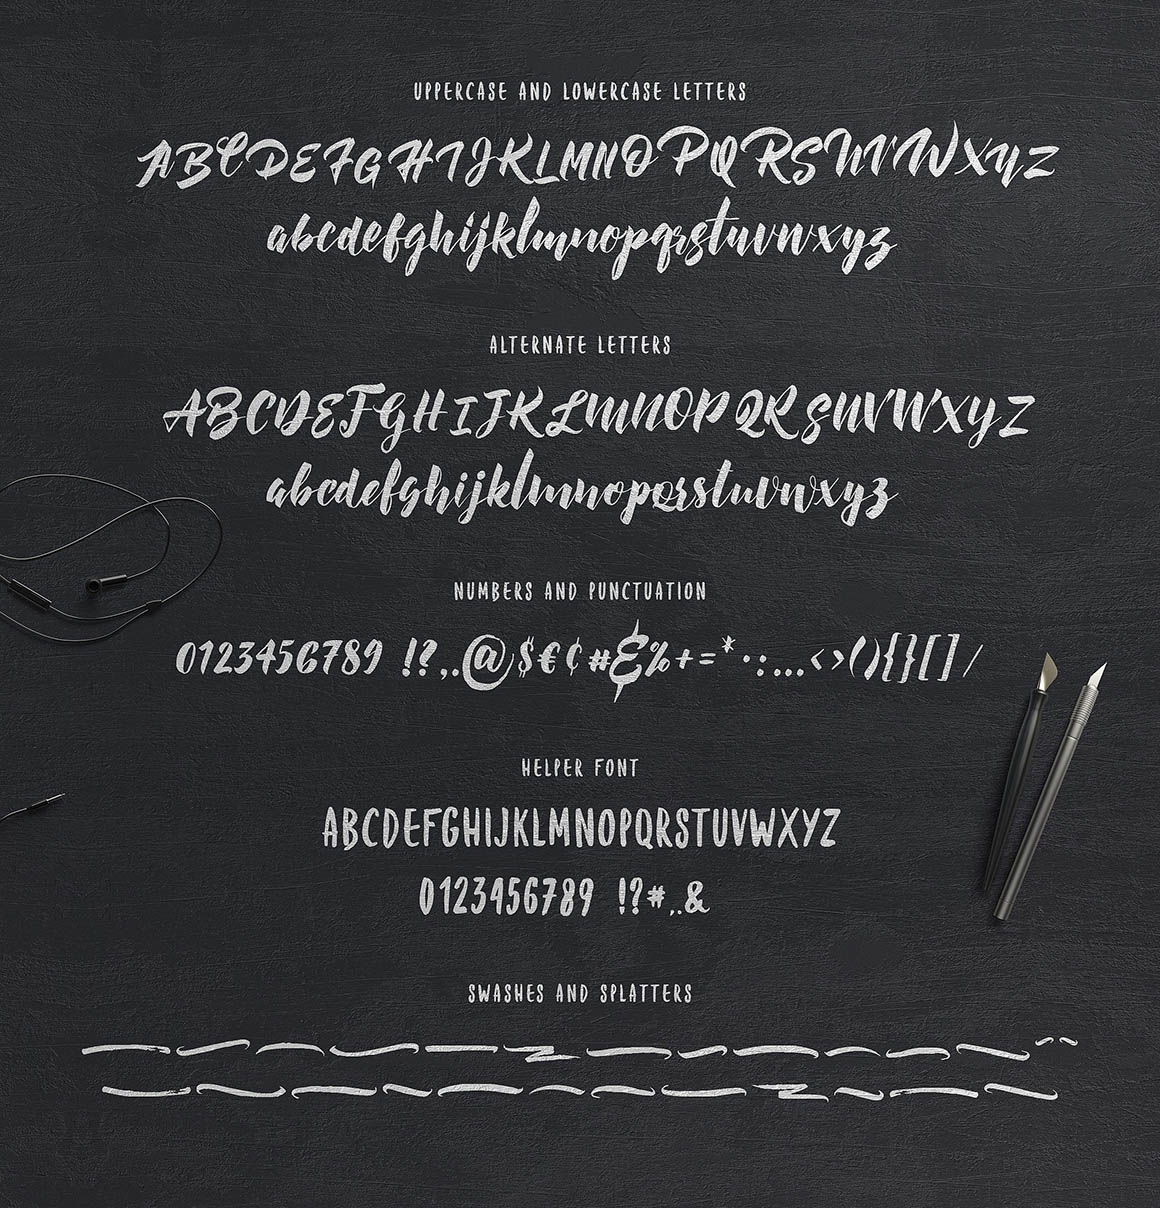 UPPERCASE AND LOWERCASE LETTERS
ABCDEFGHIJKLMNOPQRSTUVWXYZ
abcdefghijklmnopqrstuvwxyz
ALTERNATE LETTERS
ABCDEFGHIJKLMNOPQRSUVWXYZ
abcdefghijklmnopqrstuvwxyz
NUMBERS AND PUNCTUATION
0123456789 !?,.@$€¢#&%+=*·:...<>(){}[]/
HELPER FONT
ABCDEFGHIJKLMNOPQRSTUVWXYZ
0123456789 !?#,.&
SWASHES AND SPLATTERS